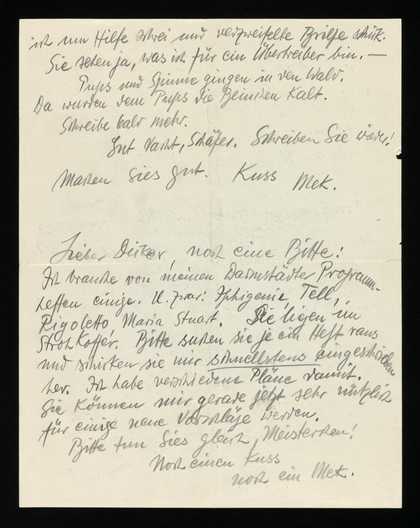 ich um Hilfe schrei und verzweifelte Briefe schick.
Sie sehen ja, was ich für ein Übertreiber bin. —
Pups und Spinne gingen in den Wald.
Da wurden dem Pups die Beinchen kalt.
Schreibe bald mehr.
Gut Nacht, Schäfer. Schreiben Sie wieder!
Machen Sies gut. Kuss Mek.
Lieber Dicker, noch eine Bitte!
Ich brauche von meinen Darmstädter Programm-
heften einige. U. zwar: Iphigenie, Tell,
Rigoletto, Maria Stuart. Sie liegen im
Strohkoffer. Bitte suchen sie je ein Heft raus
und schicken sie mir schnellstens eingeschrieben
her. Ich habe verschiedene Pläne damit.
Sie können mir gerade jetzt sehr nützlich
für einige neue Vorschläge werden.
Bitte tun Sies gleich, Meisterchen!
Noch einen Kuss
noch ein Mek.